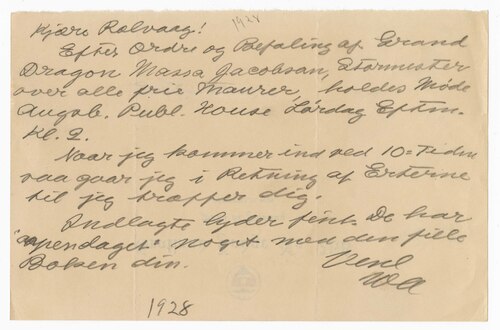 1928
Kjære Rølvaag!
Efter Ordre og Befaling af Grand
Dragon Massa Jacobson, Stormester
over alle frie Maurer, holdes Møde
Augsb. Publ. House Lørdag Eftm.
Kl. 2.
Naar jeg kommer ind ved 10-Tiden
saa gaar jeg i Retning af Erterne
til jeg træffer dig.
Indlagte lyder fint. De har
noget med den
Boken din.
Venl
1928